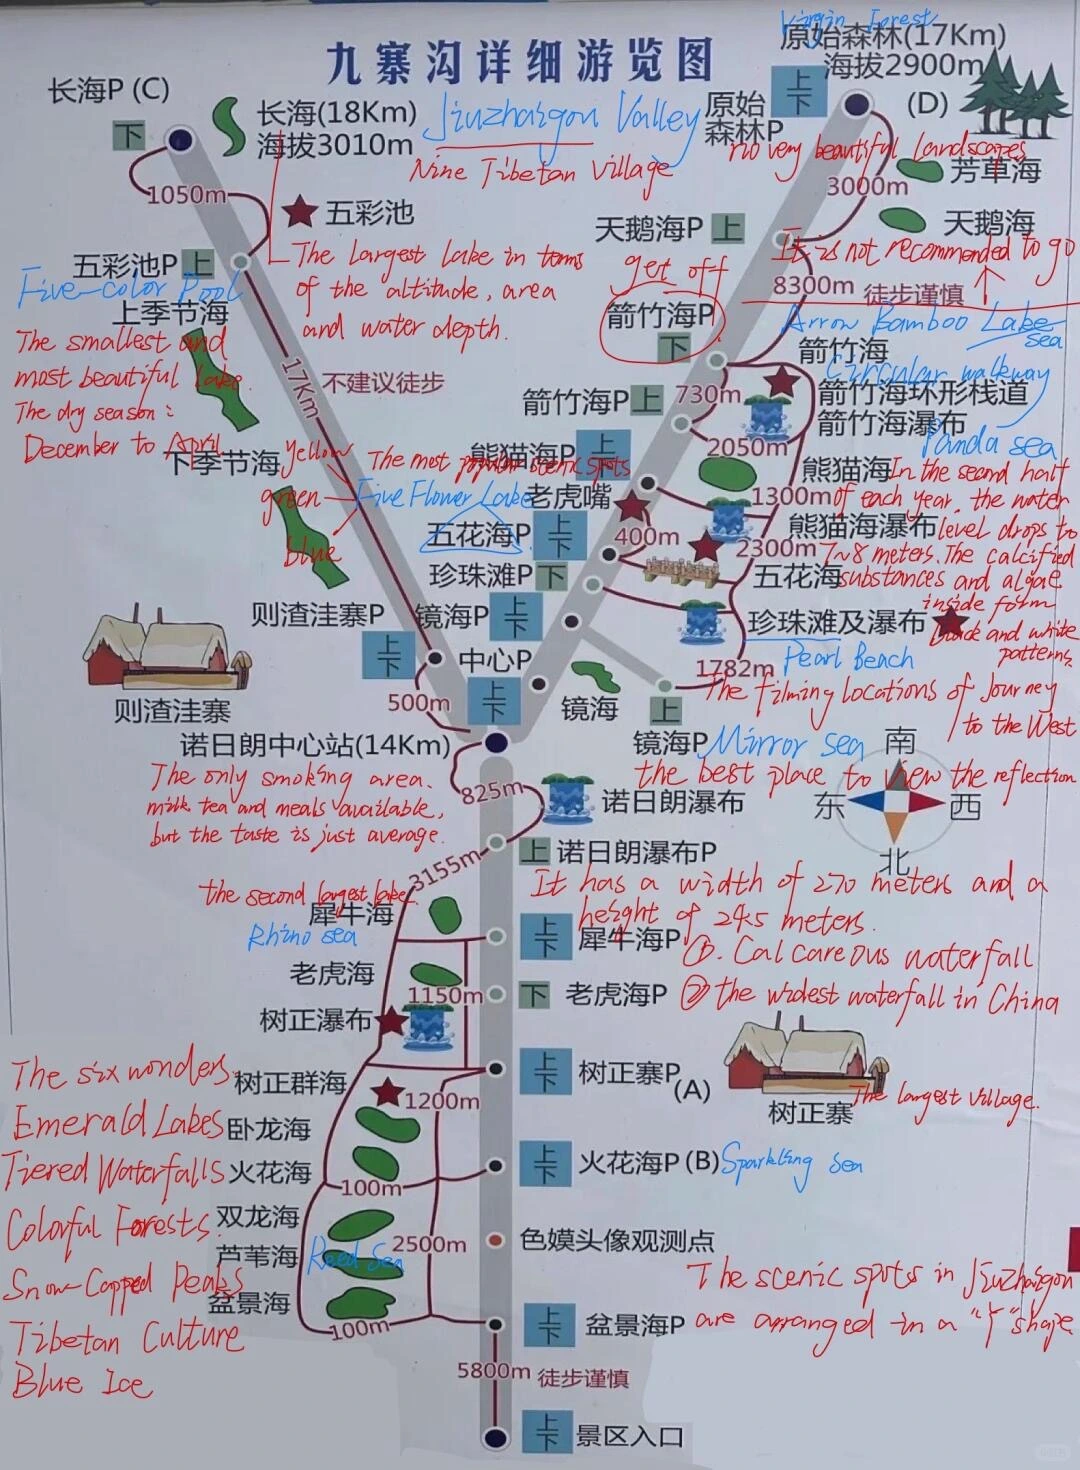 九寨沟详细游览图
Virgin Forest
原始森林(17Km)
海拔2900m
长海P (C)
下
长海(18Km)
海拔3010m
Jiuzhaigou Valley
Nine Tibetan Village
原始
森林P
上
下
(D)
no very beautiful landscapes
芳草海
1050m
3000m
五彩池
天鹅海P 上
天鹅海
The largest lake in terms
of the altitude, area
and water depth.
get off
It is not recommended to go
五彩池P 上
Five-color Pool
8300m 徒步谨慎
上季节海
The smallest and
most beautiful lake.
The dry season:
December to April
箭竹海P
下
Arrow Bamboo Lake
sea
箭竹海
Circular walkway
17Km
不建议徒步
箭竹海P 上
730m
箭竹海环形栈道
箭竹海瀑布
Panda sea
2050m
下季节海
yellow
green
blue
熊猫海P
上
下
The most popular scenic spots
Five Flower Lake
老虎嘴
熊猫海
In the second half
of each year, the water
level drops to
7~8 meters. The calcified
substances and algae
inside form
black and white
patterns.
1300m
熊猫海瀑布
五花海P
上
下
400m
2300m
珍珠滩P 下
五花海
则渣洼寨P
上
下
镜海P
上
下
珍珠滩及瀑布
Pearl Beach
中心P
上
下
1782m
The filming locations of Journey
to the West
500m
则渣洼寨
镜海
上
镜海P
Mirror sea
the best place to view the reflection
诺日朗中心站(14Km)
The only smoking area.
milk tea and meals available,
but the taste is just average.
南
东
西
北
825m
诺日朗瀑布
上 诺日朗瀑布P
3155m
It has a width of 270 meters and a
height of 24.5 meters.
①. Calcareous waterfall
② the widest waterfall in China
the second largest lake.
犀牛海
Rhino sea
上
下
犀牛海P
老虎海
1150m
下 老虎海P
树正瀑布
The six wonders.
Emerald Lakes
Tiered Waterfalls
Colorful Forests.
Snow-Capped Peaks
Tibetan Culture
Blue Ice
树正群海
1200m
上
下
树正寨P
(A)
树正寨
The largest village.
卧龙海
火花海
100m
上
下
火花海P (B)
Sparkling Sea
双龙海
芦苇海
Reed Sea
2500m
色嫫头像观测点
盆景海
100m
上
下
盆景海P
The scenic spots in Jiuzhaigou
are arranged in a "Y" shape
5800m 徒步谨慎
上
下
景区入口